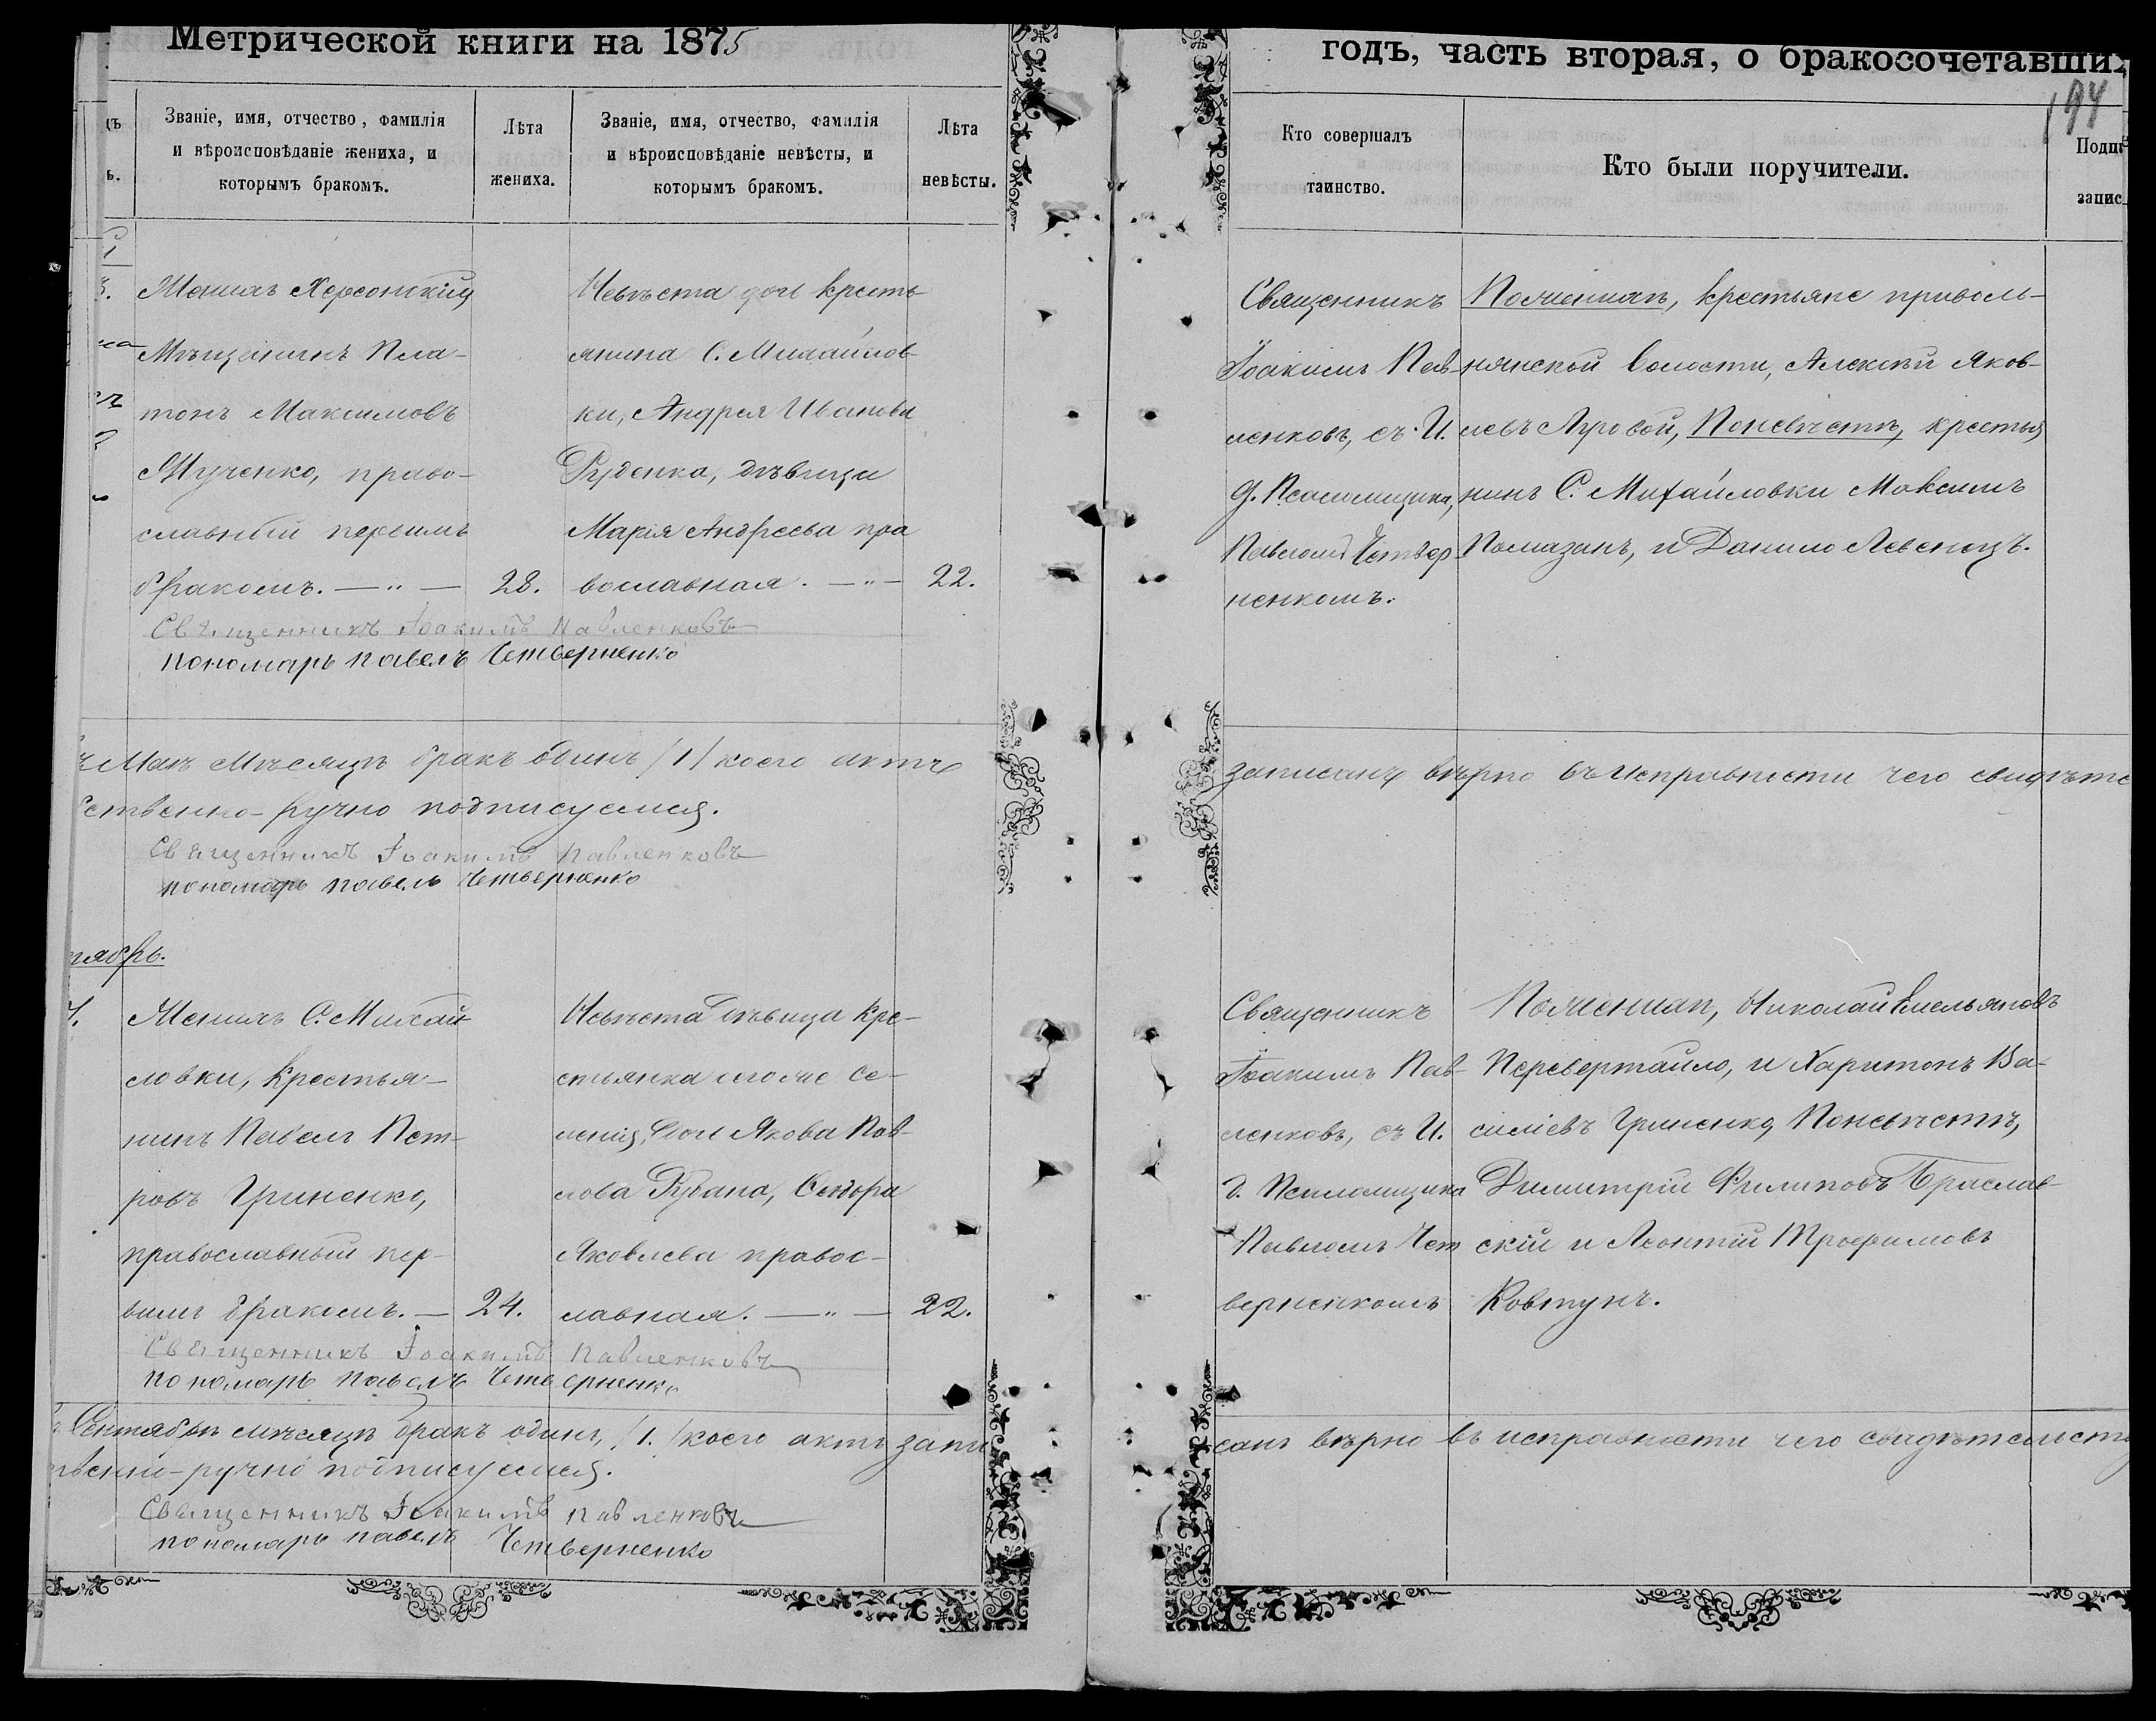 Метрической книги на 1875
годъ, часть вторая, о бракосочетавших
194
Званіе, имя, отчество, фамилія
и вѣроисповѣданіе жениха, и
которымъ бракомъ.
Лѣта
жениха.
Званіе, имя, отчество, фамилія
и вѣроисповѣданіе невѣсты, и
которымъ бракомъ.
Лѣта
невѣсты.
Кто совершалъ
таинство.
Кто были поручители.
Подпи
запис
Женихъ Херсонскій
Мѣщанинъ Пла-
тонъ Максимовъ
православный первымъ
бракомъ. — „ —
28.
Невѣста дочь крестья
янина С. Михайлов-
ки, Андрея Иванова
Руденка, дѣвица
Марія Андреева пра
вославная. — „ —
22.
Священникъ
Іоакимъ Пав-
ленковъ, съ И.
д. Псаломщика,
Павломъ Четвер
ненкомъ.
Пожениха, крестьяне приволь-
нянской волости, Алексѣй Яков-
левъ Яровой, Поневѣстѣ, крестья
нинъ С. Михайловки Максимъ
Помазанъ, и Данило Левенецъ.
Священникъ Іоакимъ Павленковъ
пономарь павелъ Четверненко
Маѣ Мѣсяцѣ бракъ одинъ /1/ коего актъ
записанъ вѣрно въ исправности чего свидѣте
ственно-ручно подписуемся.
Священникъ Іоакимъ Павленковъ
пономарь павелъ Четверненко
тябрь.
Женихъ С. Михай
ловки, Крестья-
нинъ Павелъ Пет-
ровъ Гриненко,
православный пер-
вымъ бракомъ. —
24.
Невѣста дѣвица Кре-
стьянка того же Се-
ленія, дочь Якова Пав-
лова Рубана, Феодора
Яковлева правос-
лавная. — „ —
22.
Священникъ
Іоакимъ Пав-
ленковъ, съ И.
д. Псаломщика
Павломъ Чет
верненкомъ
Пожениха, Николай Емельяновъ
Перевертайло, и Харитонъ Ва-
силіевъ Гриненко, Поневѣстѣ,
Димитрій Филиповъ Браслав-
скій и Леонтій Трофимовъ
Ковтунъ.
Священникъ Іоакимъ Павленковъ
пономарь павелъ Четверненко
Сентябрѣ мѣсяцѣ бракъ одинъ, /1./ коего актъ запи
санъ вѣрно въ исправности чего свидѣтельству
твенно-ручно подписуемся.
Священникъ Іоакимъ Павленковъ
пономарь павелъ Четверненко